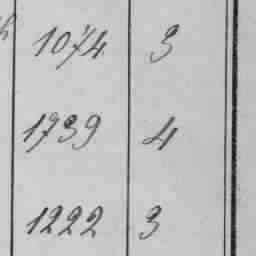 1074 3
1739 4
1222 3